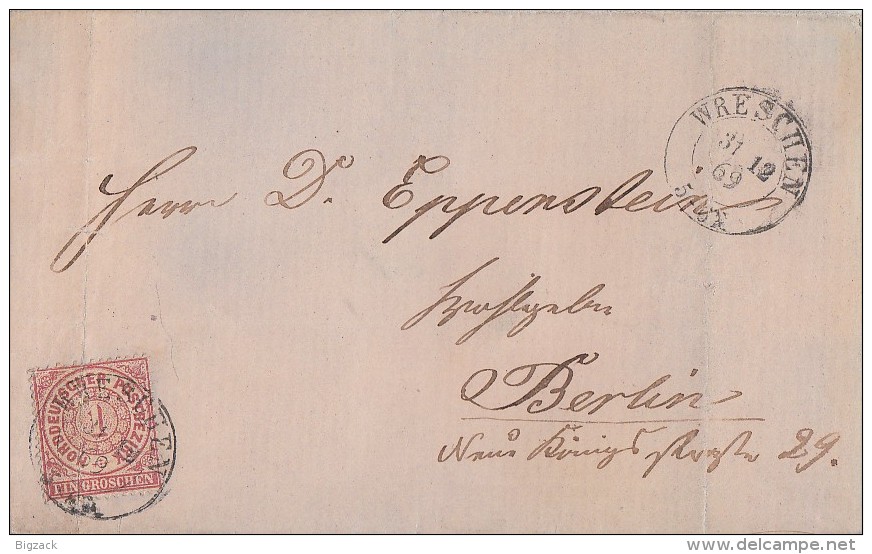 WRESCHEN
31 12
69
5-6N
Herrn Dr. Eppenstein
Wohlgeboren
Berlin
Neue Königs straße 29.
NORDDEUTSCHER POSTBEZIRK
1
EIN GROSCHEN
Bigzack
www.delcampe.net